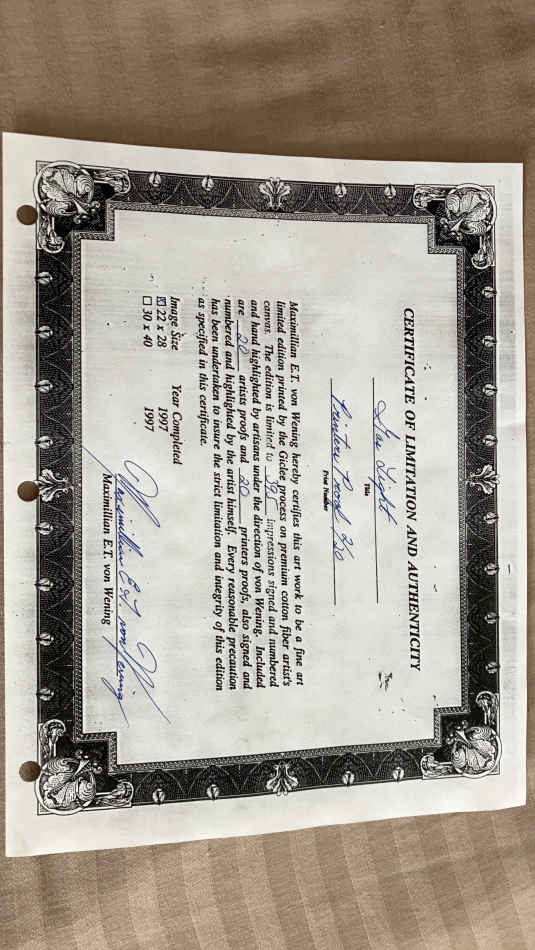 CERTIFICATE OF LIMITATION AND AUTHENTICITY
Light
Title
Printers Proof 2/20
Print Number
Maximillian E.T. von Wening hereby certifies this art work to be a fine art
limited edition printed by the Giclee process on premium cotton fiber artist's
canvas. The edition is limited to 395 impressions signed and numbered
and hand highlighted by artisans under the direction of von Wening. Included
are 20 artists proofs and 20 printers proofs, also signed and
numbered and highlighted by the artist himself. Every reasonable precaution
has been undertaken to insure the strict limitation and integrity of this edition
as specified in this certificate.
Image Size Year Completed
☒ 22 x 28 1997
☐ 30 x 40 1997
Maximillian E.T. von Wening
Maximillian E.T. von Wening